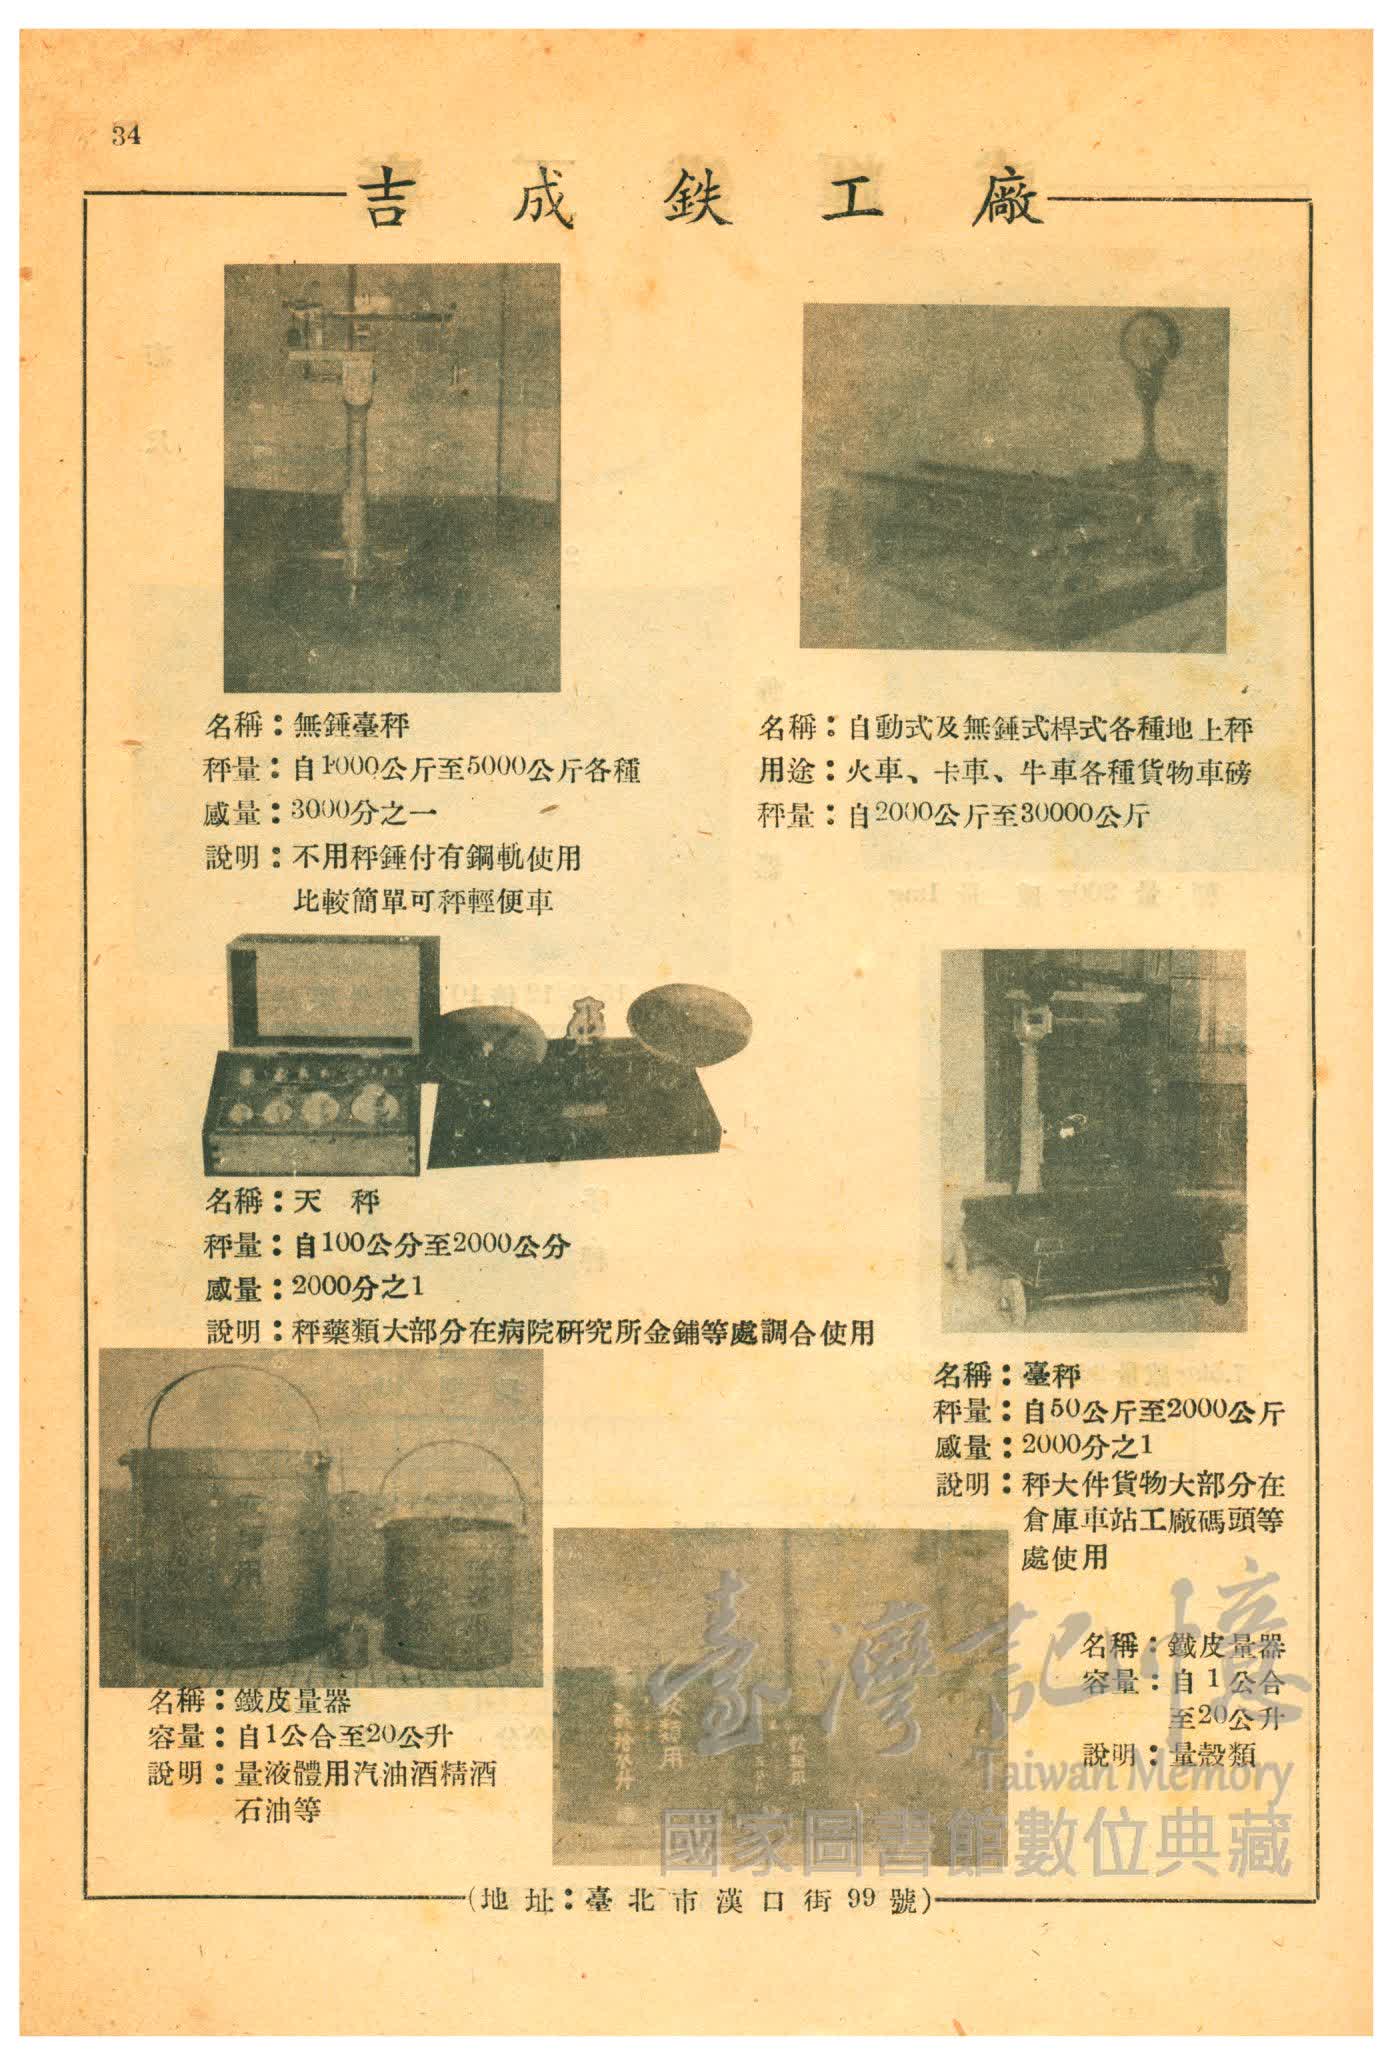 34
吉成鉄工廠
名稱：無錘臺秤
秤量：自1000公斤至5000公斤各種
感量：3000分之一
說明：不用秤錘付有鋼軌使用
比較簡單可秤輕便車
名稱：自動式及無錘式桿式各種地上秤
用途：火車、卡車、牛車各種貨物車磅
秤量：自2000公斤至30000公斤
名稱：天 秤
秤量：自100公分至2000公分
感量：2000分之1
說明：秤藥類大部分在病院研究所金鋪等處調合使用
名稱：臺秤
秤量：自50公斤至2000公斤
感量：2000分之1
說明：秤大件貨物大部分在
倉庫車站工廠碼頭等
處使用
名稱：鐵皮量器
容量：自1公合至20公升
說明：量液體用汽油酒精酒
石油等
名稱：鐵皮量器
容量：自1公合
至20公升
說明：量穀類
臺灣記憶
Taiwan Memory
國家圖書館數位典藏
(地址：臺北市漢口街99號)